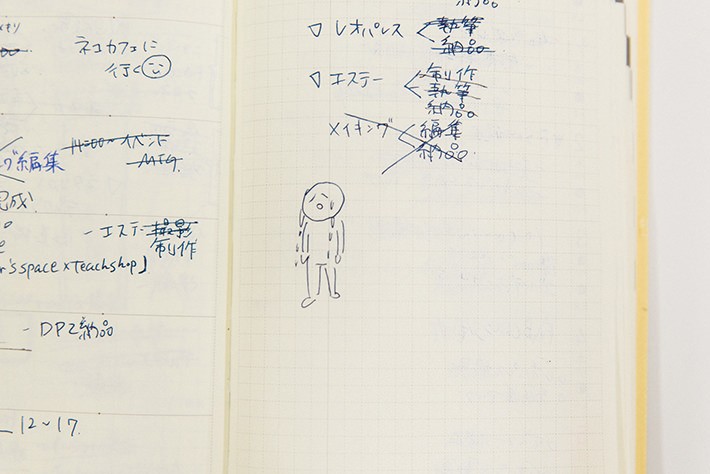 ネコカフェに
行く
14:00〜 イベント
MTG.
グ編集
完成!
- エステー 撮影
制作
r's space × Teachshop」
- DPZ納品
12〜17
納品
▽ レオパレス 執筆
納品
▽ エステー 制作
執筆
納品
メイキング 編集
納品